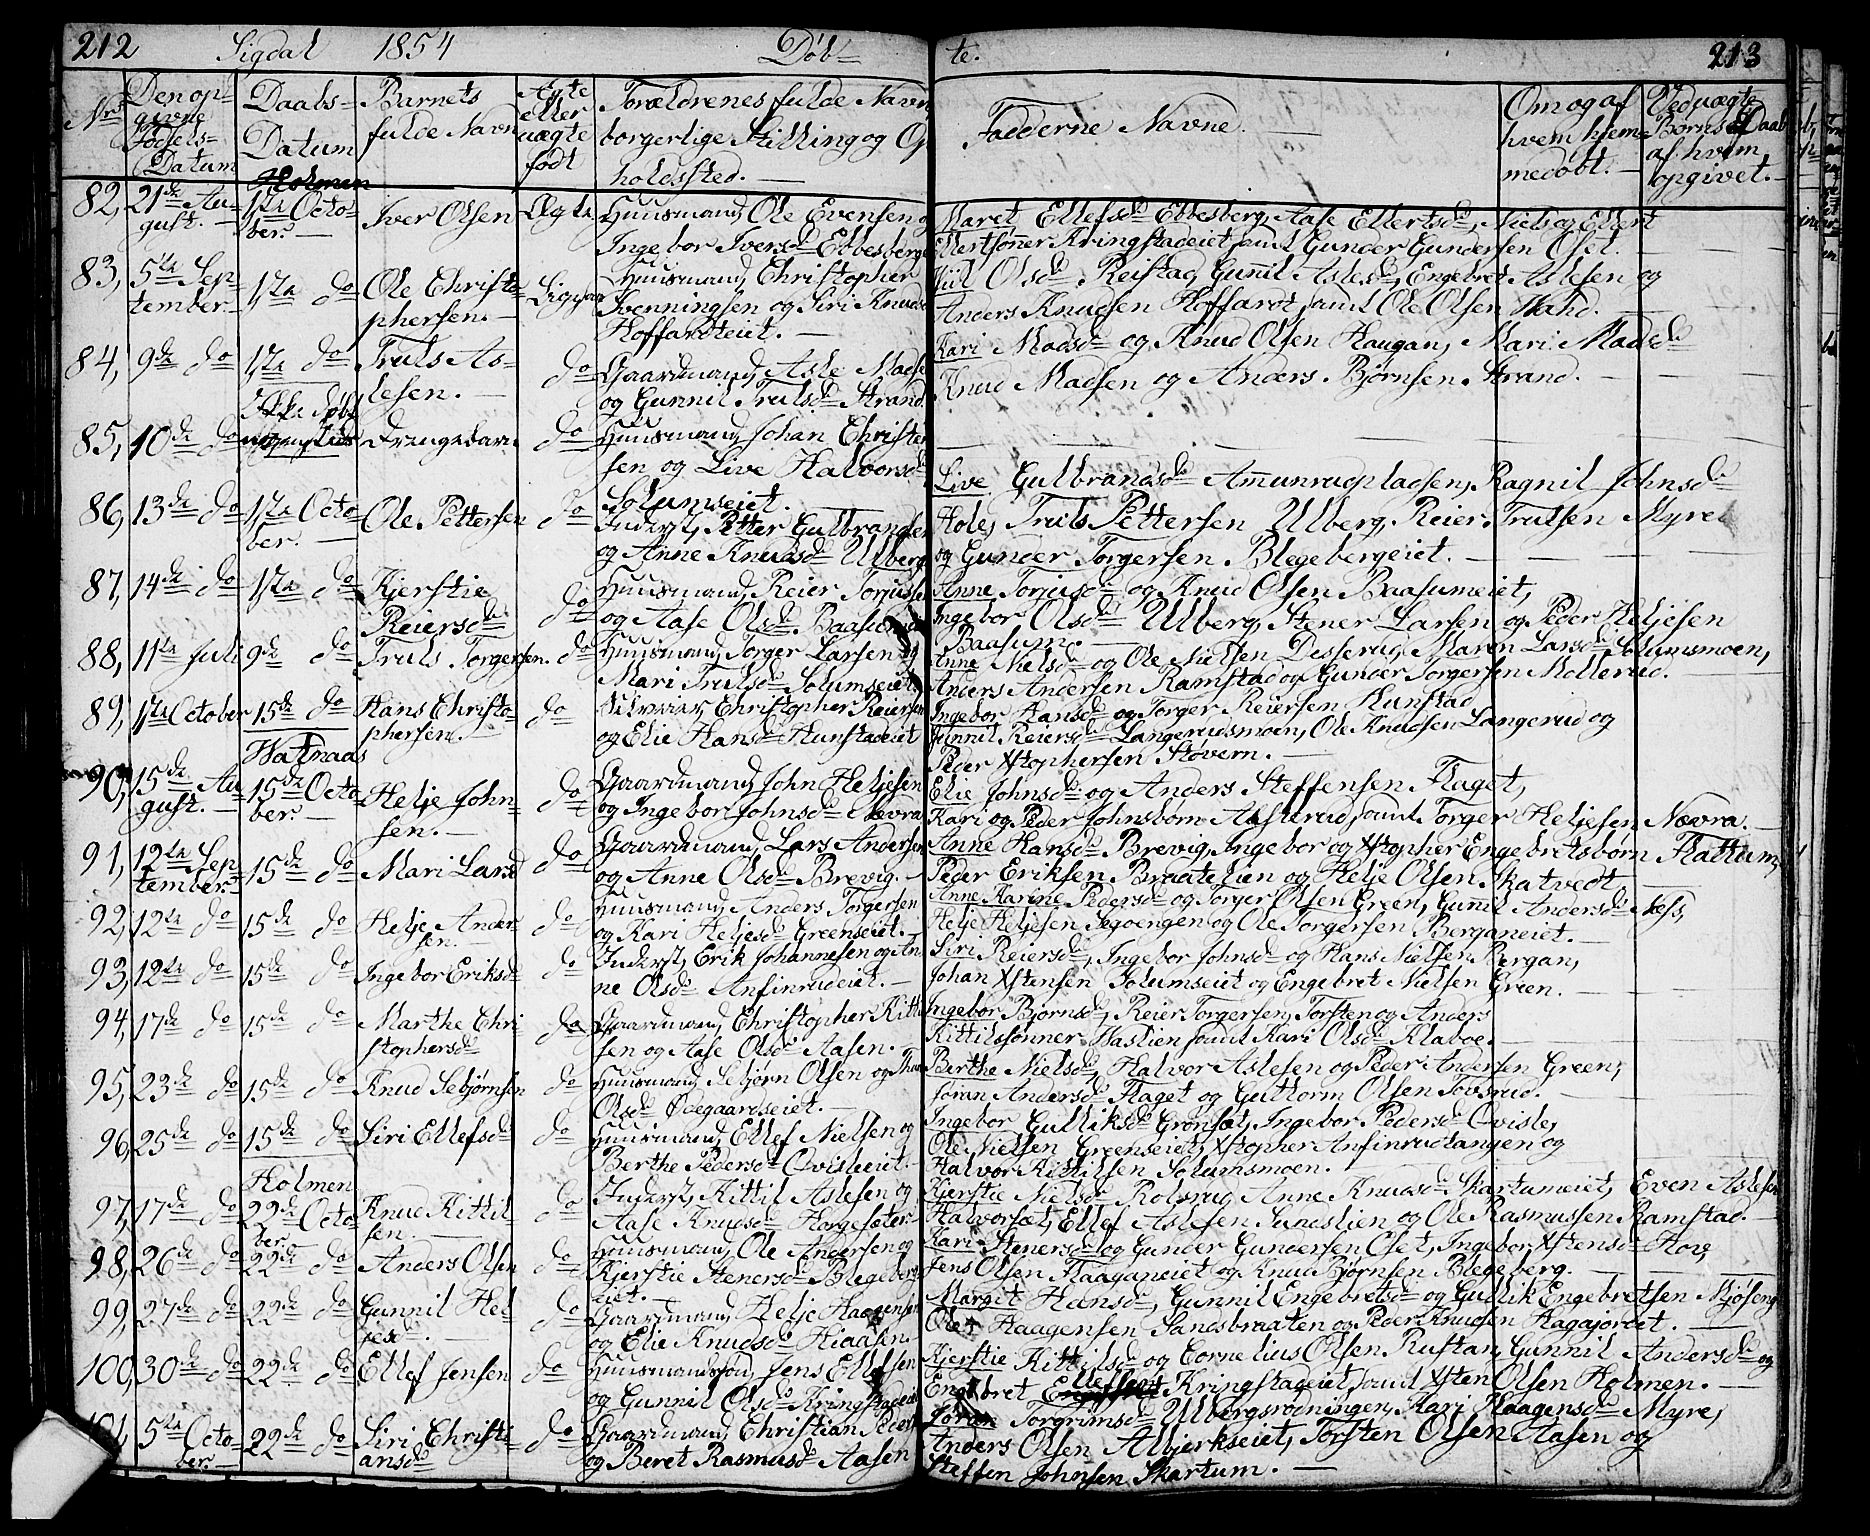 212 Sigdal 1854 Døb-
te. 213
Nr.
Den op-
givne
Fødsels-
Datum
Daabs-
Datum
Barnets
fulde Navn
Ægte
eller
uægte
født
Forældrenes fulde Navn,
borgerlige Stilling og Op
holdssted.
Faddernes Navne.
Om og af
hvem hjem-
medøbt.
Ved uægte
Børns Daab
af hvem
opgivet.
Holmen
82, 21de Au-
gust.
1ste Octo-
ber.
Iver Olsen
Ægte
Huusmand, Ole Evensen og
Ingebor Iversd. Ebbesberg
Maret Ellefsd. Ebbesberg, Aase Ellertsd., Niels og Ellert
Ellertsønner Kringstadeiet, samt Gunder Gundersen Oset.
83, 5te Sep-
tember.
1ste do
Ole Christo-
phersen.
Huusmand, Christopher
Svenningsen og Siri Knudsd.
Hoffardteiet.
Olsd. Reistad, Gunnil Aslesd., Engebret Aslesen og
Anders Knudsen Hoffardt, samt Ole Olsen
84, 9de do
1ste do
Truls As-
lesen.
do
Gaardmand, Asle Madsen
og Gunnil Trulsd. Strand.
Kari Madsd. og Knud Olsen Haugan, Mari Madsd.
Knud Madsen og Anders Bjørnsen Strand.
85, 10de do
Ikke døbt
Drengebarn
do
Huusmand, Johan Christen
sen og Live Halvorsd.
Solumseiet.
86, 13de do
1ste Octo-
ber.
Ole Pettersen
do
Inderst, Petter Gulbrandsen
og Anne Knudsd. Ulberg
Live Gulbrandsd. Amunrudpladsen, Ragnil Johnsd.
Hole, Truls Pettersen Ulberg, Reier Trulsen Myre
og Gunder Torgersen Blegebergeiet.
87, 14de do
1ste do
Kjerstie
Reiersd.
do
Huusmand, Reier Torjussen
og Aase Olsd. Baasumeiet
Anne Torjusd. og Knud Olsen Baasumeiet,
Ingebor Olsd. Ulberg, Stener Larsen og Peder Heljesen
Baasum.
88, 11te Juli
9de do
Truls Torgersen.
do
Huusmand, Torger Larsen og
Mari Trulsd. Solumseiet
Anne Nielsd. og Ole Nielsen Desserud, Maren Larsd. Solumsmoen,
Anders Andersen Ramstad og Gunder Torgersen Mollerud.
89, 1ste October
15de do
Hans Christo-
phersen.
do
Christopher Reiersen
og Elie Hansd. Hunstadeiet
Ingebor Hansd. og Torger Reiersen Hunstad
Gunnil Reiersd. Langerudsmoen, Ole Knudsen Langerud og
Peder Xstophersen Støvern.
Vatnaas
90, 15de Au-
gust.
15de Octo-
ber.
Helje John-
sen.
do
Gaardmand, John Heljesen
og Ingebor Johnsd. Nævra
Elie Johnsd. og Anders Steffensen Flaget,
Kari og Peder Johnsbørn Aslerud, samt Torger Heljesen Nævra.
91, 12te Sep-
tember.
15de do
Mari Larsd.
do
Gaardmand, Lars Andersen
og Anne Olsd. Brevig.
Anne Hansd. Brevig, Ingebor og Xstopher Engebretsbørn Flattum,
Peder Eriksen Braatelien og Helje Olsen Skatvedt.
92, 12te do
15de do
Helje Ander-
sen.
do
Huusmand, Anders Torgersen
og Kari Heljesd. Greenseiet.
Anne Karine Pedersd. og Torger Olsen Green, Gunnil Andersd. Næss,
Helje Heljesen Segoengen og Ole Torgersen Berganeiet.
93, 12te do
15de do
Ingebor Eriksd.
do
Inderst, Erik Johannesen og An
ne Olsd. Anfinrudeiet.
Siri Reiersd., Ingebor Johnsd. og Hans Nielsen Bergan,
Johan Xstensen Solumseiet og Engebret Nielsen Green.
94, 17de do
15de do
Marthe Chri
stophersd.
do
Gaardmand, Christopher Kittil
sen og Aase Olsd. Aasen.
Ingebor Bjørnsd., Reier Torgersen, Torsten og Anders
Kittilssønner Vaslien samt Kari Olsd. Klaboe.
95, 23de do
15de do
Knud Sebjørnsen
do
Huusmand, Sebjørn Olsen og
Olsd. Ødegaardseiet.
Berthe Nielsd., Halvor Aslesen og Peder Andersen Green,
Jøran Andersd. Flaget og Guttorm Olsen Tovsrud.
96, 25de do
15de do
Siri Ellefsd.
do
Huusmand, Ellef Nielsen og
Berthe Pedersd. Qvisleeiet.
Ingebor Gulliksd. Grønset, Ingebor Pedersd. Qvisle,
Ole Nielsen Greenseiet, Xstopher Anfinrudtangen og
Halvor Kittilsen Solumsmoen.
Holmen
97, 17de do
22de Octo-
ber.
Knud Kittil-
sen.
do
Inderst, Kittil Aslesen og
Aase Knudsd. Horgesæter.
Kjerstie Nielsd. Rolsrud, Anne Knudsd. Skartumeiet, Even Aslesen
Halvorset, Ellef Aslesen Sundslien og Ole Rasmussen Ramstad.
98, 26de do
22de do
Anders Olsen
do
Huusmand, Ole Andersen og
Kjerstie Stenersd. Blegeberg
eiet.
Kari Stenersd. og Gunder Gundersen Oset, Ingebor Xstensd. Hore,
Jens Olsen Flaaganeiet og Knud Bjørnsen Blegeberg.
99, 27de do
22de do
Gunnil Hel
jesd.
do
Gaardmand, Helje Haagensen
og Elie Knudsd. Hiaasen.
Margit Hansd., Gunnil Engebretsd. og Gullik Engebretsen Mjøseng
Ole Haagensen Sandsbraaten og Peder Knudsen Hagajordet.
100, 30de do
22de do
Ellef Jensen
do
Huusmand, Jens Ellefsen
og Gunnil Olsd. Kringstadeiet
Kjerstie Kittilsd. og Cornelius Olsen Rustan, Gunnil Andersd. og
Engebret Ellefsen Kringstadeiet, samt Xsten Olsen Holmen.
101, 5te Octo-
ber.
22de do
Siri Christi-
ansd.
do
Gaardmand, Christian
og Beret Rasmusd. Aasen
Jøran Torgrimsd. Ulbergsrødningen, Kari Haagensd. Myre,
Anders Olsen Albjerkseiet, Torsten Olsen Aasen og
Steffen Johnsen Skartum.